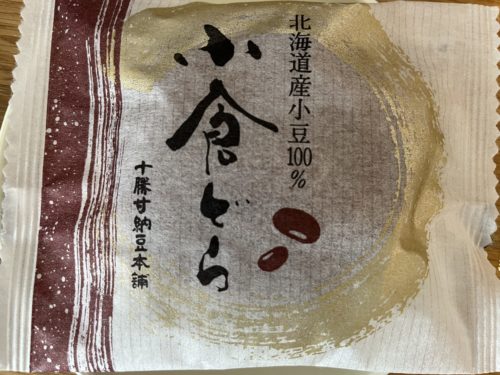 北海道産小豆100%
小倉どら
十勝甘納豆本舗